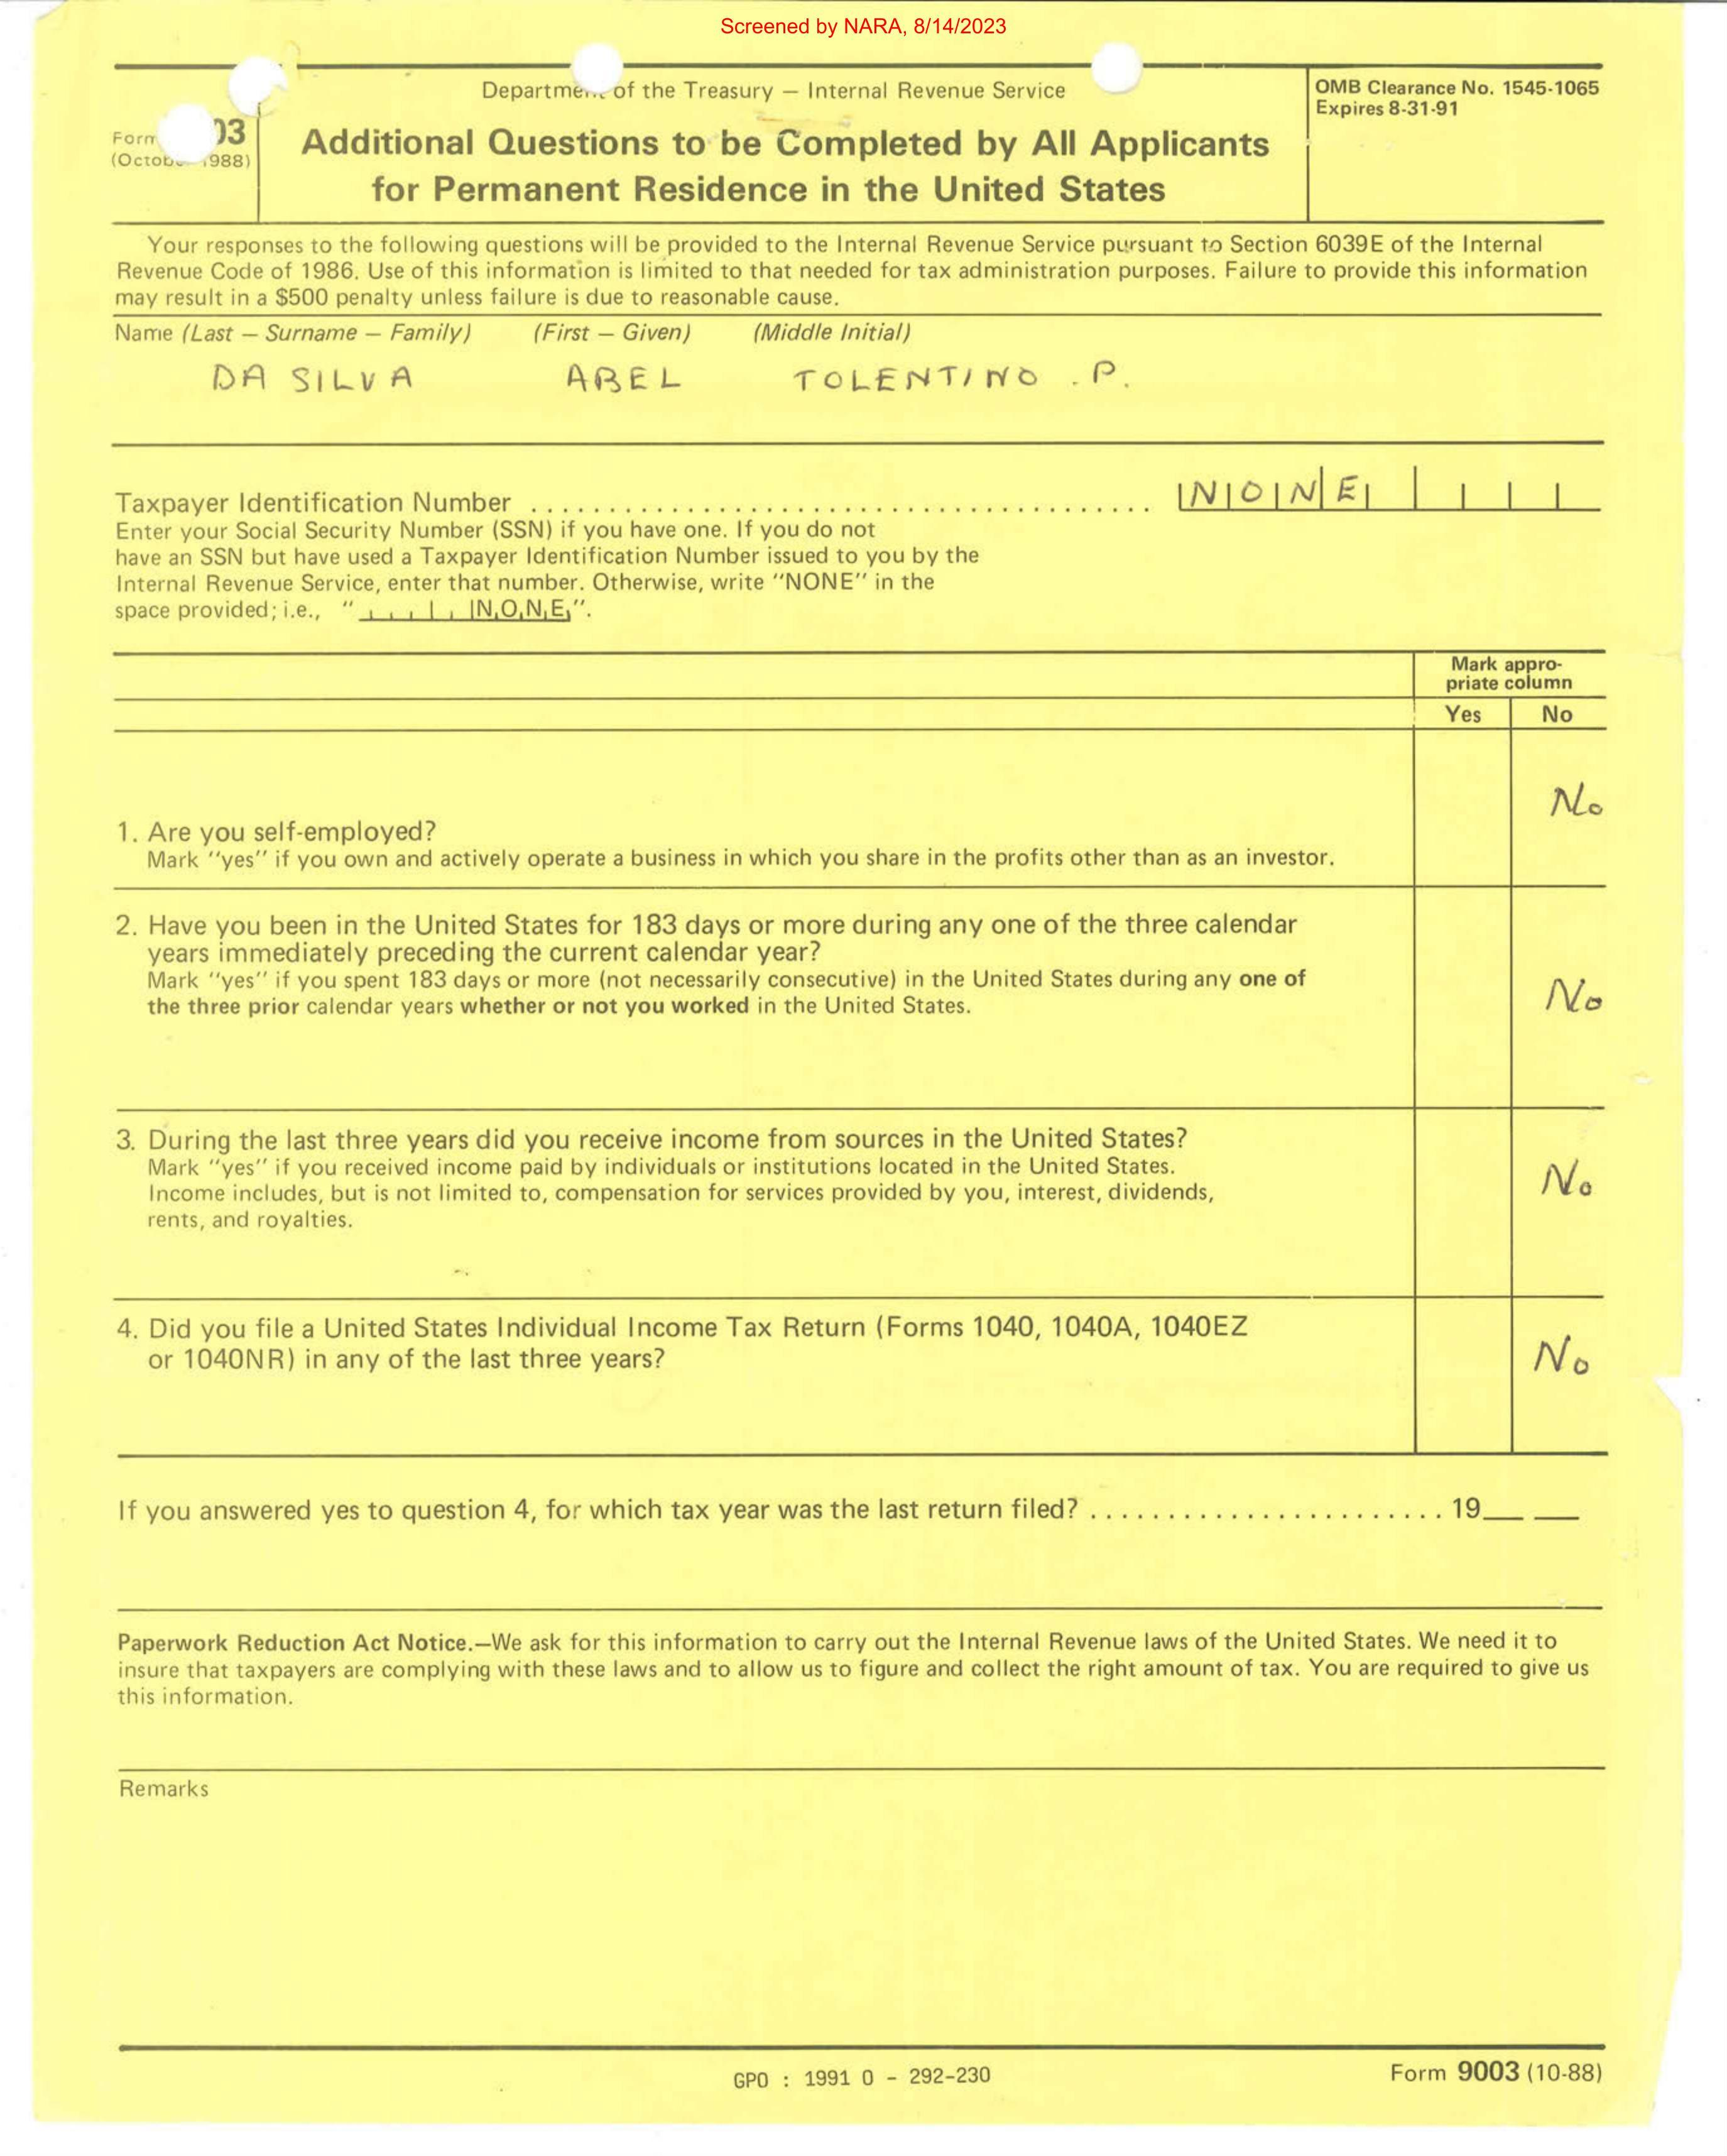 Screened by NARA, 8/14/2023
Department of the Treasury — Internal Revenue Service
OMB Clearance No. 1545-1065
Expires 8-31-91
Form 03
(October 1988)
Additional Questions to be Completed by All Applicants
for Permanent Residence in the United States
Your responses to the following questions will be provided to the Internal Revenue Service pursuant to Section 6039E of the Internal
Revenue Code of 1986. Use of this information is limited to that needed for tax administration purposes. Failure to provide this information
may result in a $500 penalty unless failure is due to reasonable cause.
Name (Last — Surname — Family) (First — Given) (Middle Initial)
DA SILVA ABEL TOLENTINO . P.
Taxpayer Identification Number ........................................ NONE
Enter your Social Security Number (SSN) if you have one. If you do not
have an SSN but have used a Taxpayer Identification Number issued to you by the
Internal Revenue Service, enter that number. Otherwise, write "NONE" in the
space provided; i.e., " N,O,N,E,".
Mark appro-
priate column
Yes No
No
1. Are you self-employed?
Mark "yes" if you own and actively operate a business in which you share in the profits other than as an investor.
2. Have you been in the United States for 183 days or more during any one of the three calendar
years immediately preceding the current calendar year?
Mark "yes" if you spent 183 days or more (not necessarily consecutive) in the United States during any one of
the three prior calendar years whether or not you worked in the United States.
No
3. During the last three years did you receive income from sources in the United States?
Mark "yes" if you received income paid by individuals or institutions located in the United States.
No
Income includes, but is not limited to, compensation for services provided by you, interest, dividends,
rents, and royalties.
4. Did you file a United States Individual Income Tax Return (Forms 1040, 1040A, 1040EZ
or 1040NR) in any of the last three years?
No
If you answered yes to question 4, for which tax year was the last return filed? ....................... 19__ __
Paperwork Reduction Act Notice.—We ask for this information to carry out the Internal Revenue laws of the United States. We need it to
insure that taxpayers are complying with these laws and to allow us to figure and collect the right amount of tax. You are required to give us
this information.
Remarks
GPO : 1991 O - 292-230
Form 9003 (10-88)